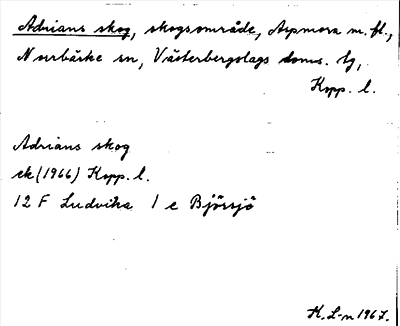 Adrians skog, skogsområde, Aspmora m. fl.,
Norrbärke sn, Västerbergslags doms. tg,
Kopp. l.
Adrians skog
ek (1966) Kopp. l.
12 F Ludvika 1 c Björsjö
H. L-n 1967.